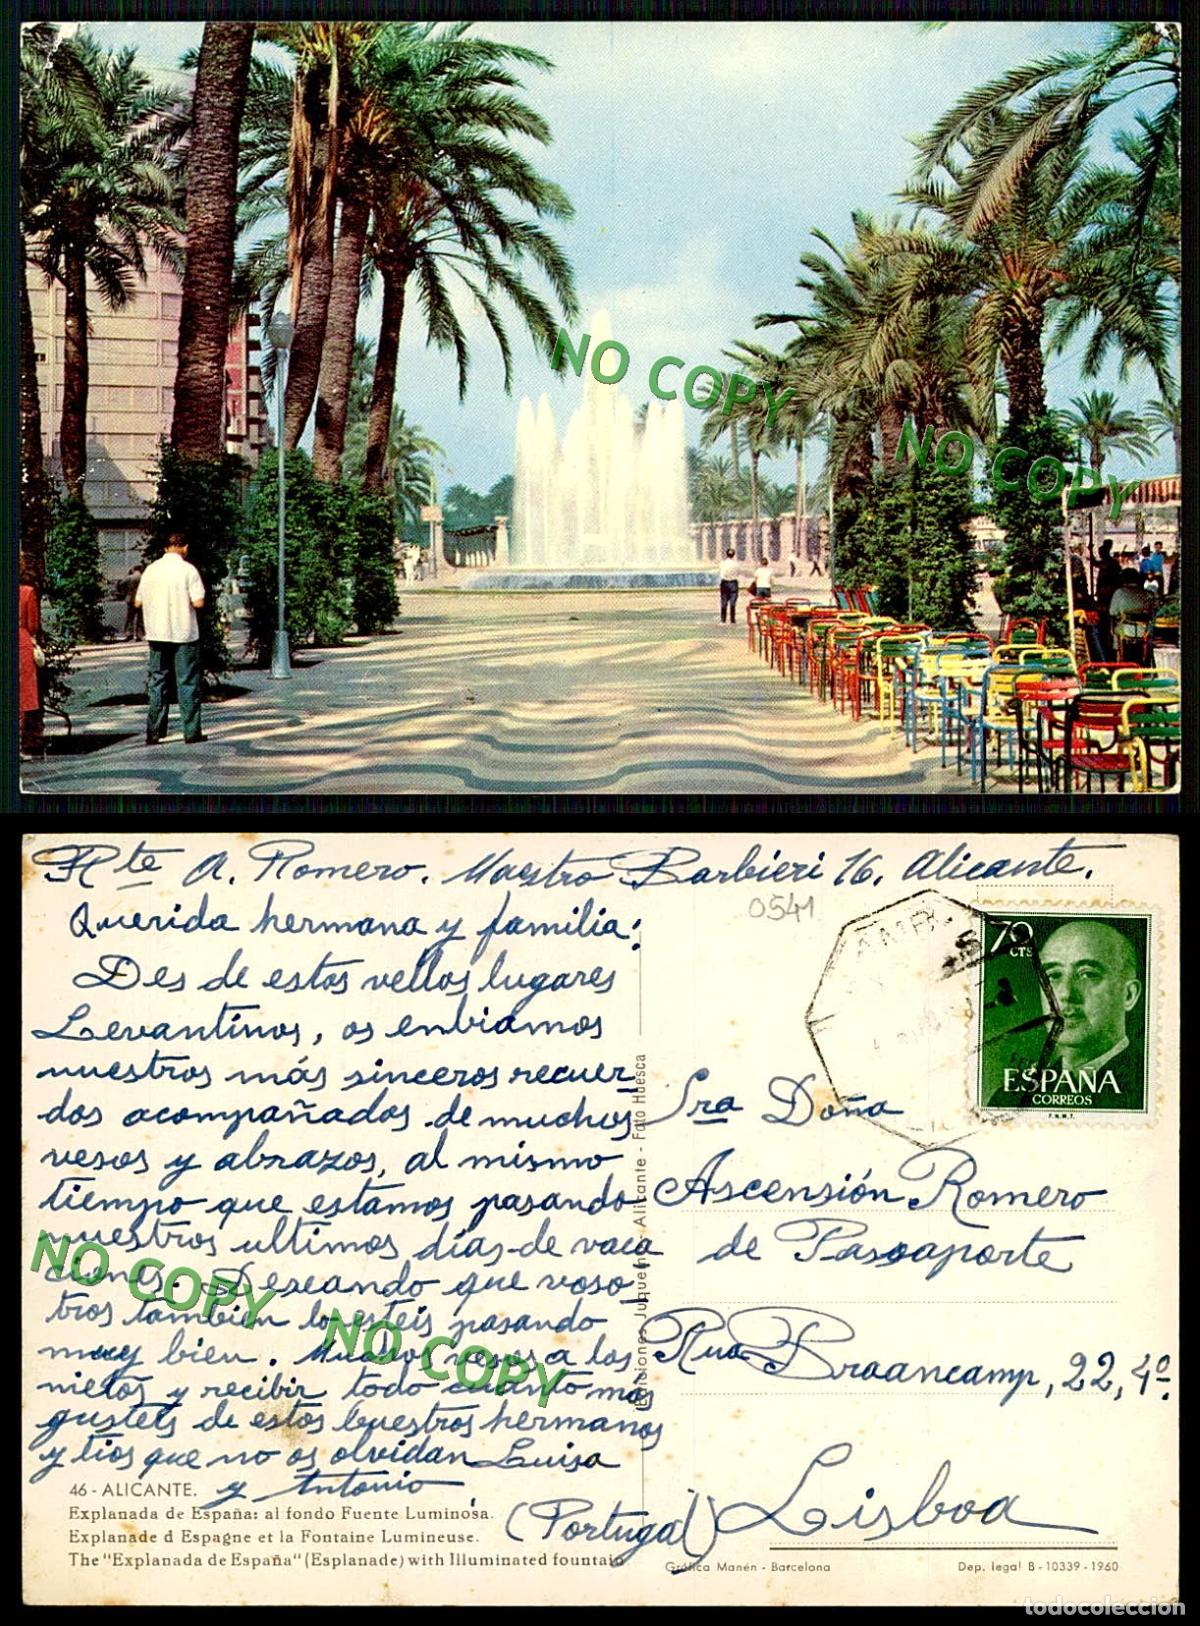 NO COPY
NO COPY
Rte A. Romero. Maestro Barbieri 16. Alicante.
0541
Querida hermana y familia:
Des de estos vellos lugares
Levantinos, os enbiamos
nuestros más sinceros recuer
dos acompañados de muchos
vesos y abrazos, al mismo
tiempo que estamos pasando
nuestros ultimos días de vaca
ciones. Deseando que voso
tros tambien lo esteis pasando
muy bien. Muchos vesos a los
nietos y recibir todo cuanto mas
gusteis de estos buestros hermanos
y tios que no os olvidan Luisa
y Antonio
NO COPY
NO COPY
70
CTS
ESPAÑA
CORREOS
F.N.M.T.
Sra Doña
Ascensión Romero
de Pasaaporte
Rua Braancamp, 22, 4º.
Lisboa
(Portugal)
Ediciones Juquemos Alicante - Foto Huesca
46 - ALICANTE.
Explanada de España: al fondo Fuente Luminosa.
Explanade d Espagne et la Fontaine Lumineuse.
The "Explanada de España" (Esplanade) with Illuminated fountain
Gráfica Manén - Barcelona
Dep. legal B - 10339 - 1960
todocoleccion